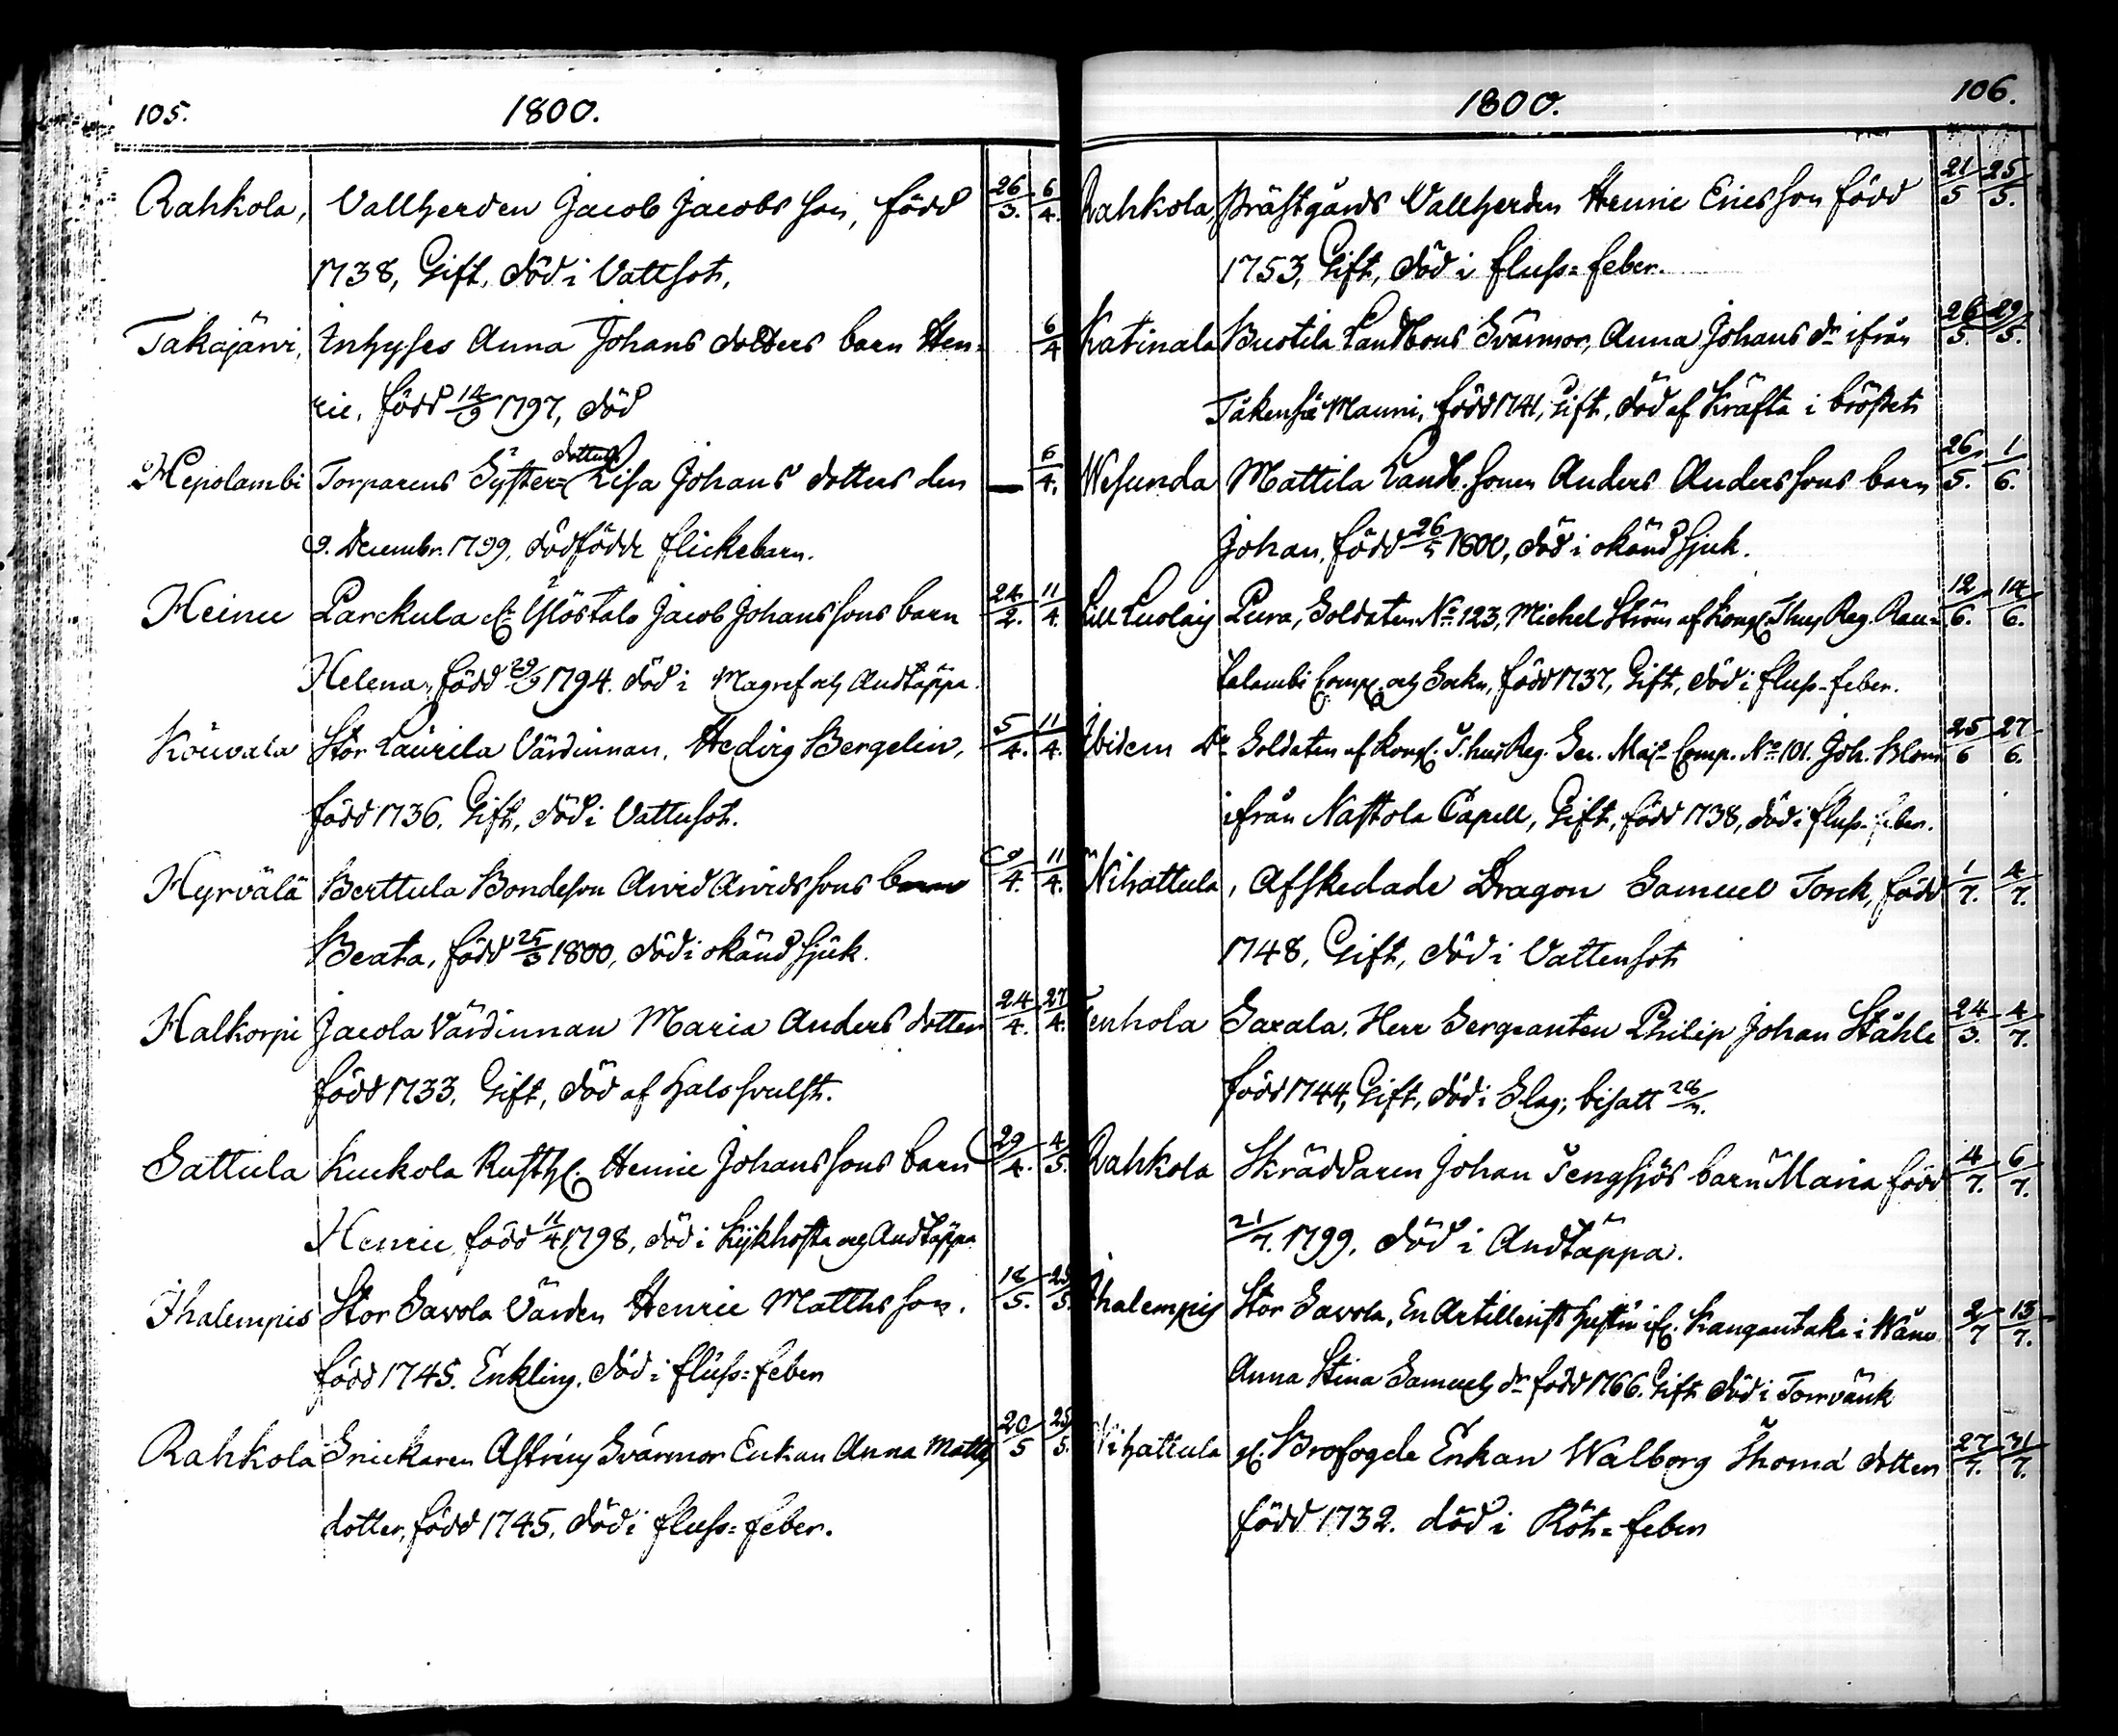 105. 1800.
Rahkola, Vallherden Jacob Jacobs son, född 26/3. 6/4.
1738, Gift, död i Vattsot.
Takajärvi, Inhyses Anna Johans dotters barn Hen= 6/4
ric, född 12/9 1797, död
Hepolambi Torparens Syster= dotters Lisa Johans dotters den — 6/4.
9. Decembr. 1799. dödfödde flickebarn.
Heinu Parckula Jacob Johanssons barn 24/2. 11/4.
Helena, född 29/9 1794. död i Magref och Andtäppa.
Kouvala Stor Laurila Värdinnan, Hedvig Bergelin, 5/4. 11/4.
född 1736. Gift, död i Vattusot.
Hyrvälä Berttula Bondeson Arvid Arvidssons barn 9/4. 11/4.
Beata, född 25/3 1800, död i okänd sjuk.
Halkorpi Jacola Värdinnan Maria Anders dotter 24/4. 27/4.
född 1733. Gift, död af halssvulst.
Sattula Kuckola Rusth. Henric Johanssons barn 29/4. 4/5.
Henric född 11/4 1798, död i Kykhosta och Andtäppa
Ihalempis Stor Savola Värden Henric Matths son. 18/5. 25/5.
född 1745. Enkling. död i fluss=feber
Rahkola Snickaren Svärmor Enkan Anna Matts 20/5 25/5.
dotter, född 1745, död i fluss=feber.
1800. 106.
Rahkola, Prästgårds Vallherden Henric Ericsson född 21/5 25/5.
1753, Gift, död i fluss=feber.
Katinala Buotila Landbons Svärmor, Anna Johans dr ifrån 26/5. 29/5.
Mauni, född 1741, Gift, död af Kräfta i bröstet
Wesunda Mattila Landb. sonen Anders Anderssons barn 26/5. 1/6.
Johan, född 26/5 1800, död i okänd sjuk.
Lill Luolais Pura, Soldaten No 123, Michel Ström af Kongl. Thus Reg. Rau= 12/6. 12/6.
talambi Comp. och Sokn, född 1737, Gift, död i fluss=feber.
Ibidem Do Soldaten af Kongl. T.hus Reg. Gen. Maj.s Comp. No 101. Joh. Blom 25/6 27/6.
ifrån Nastola Capell, Gift, född 1738, död i fluss=feber.
Nihattula, Afskedade Dragon Samuel Torck, född 1/7. 4/7.
1748, Gift, död i Vattensot
Tenhola Saxala, Herr Sergeanten Philip Johan Ståhle 24/3. 4/7.
född 1744, Gift, död i Slag; bisatt
Rahkola Skräddaren Johan Tengsjös barn Maria född 4/7. 6/7.
21/7. 1799. död i Andtäppa.
Ihalempis Stor Savola, En Artillerist hustru Kangantaka i Wånå 2/7 13/7.
Anna Stina Samuels dr född 1766. Gift död i Torrvärk
Nihattula gl. Brofogde Enkan Walborg Thomæ dotter 27/7. 31/7.
född 1732. död i Röt=feber